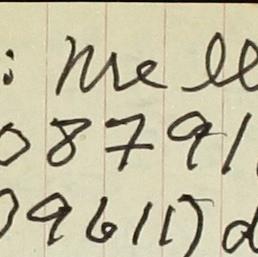 : Mre ll
08791
09611) d